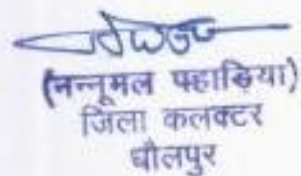 (नन्नूमल पहाड़िया)
जिला कलक्टर
धौलपुर